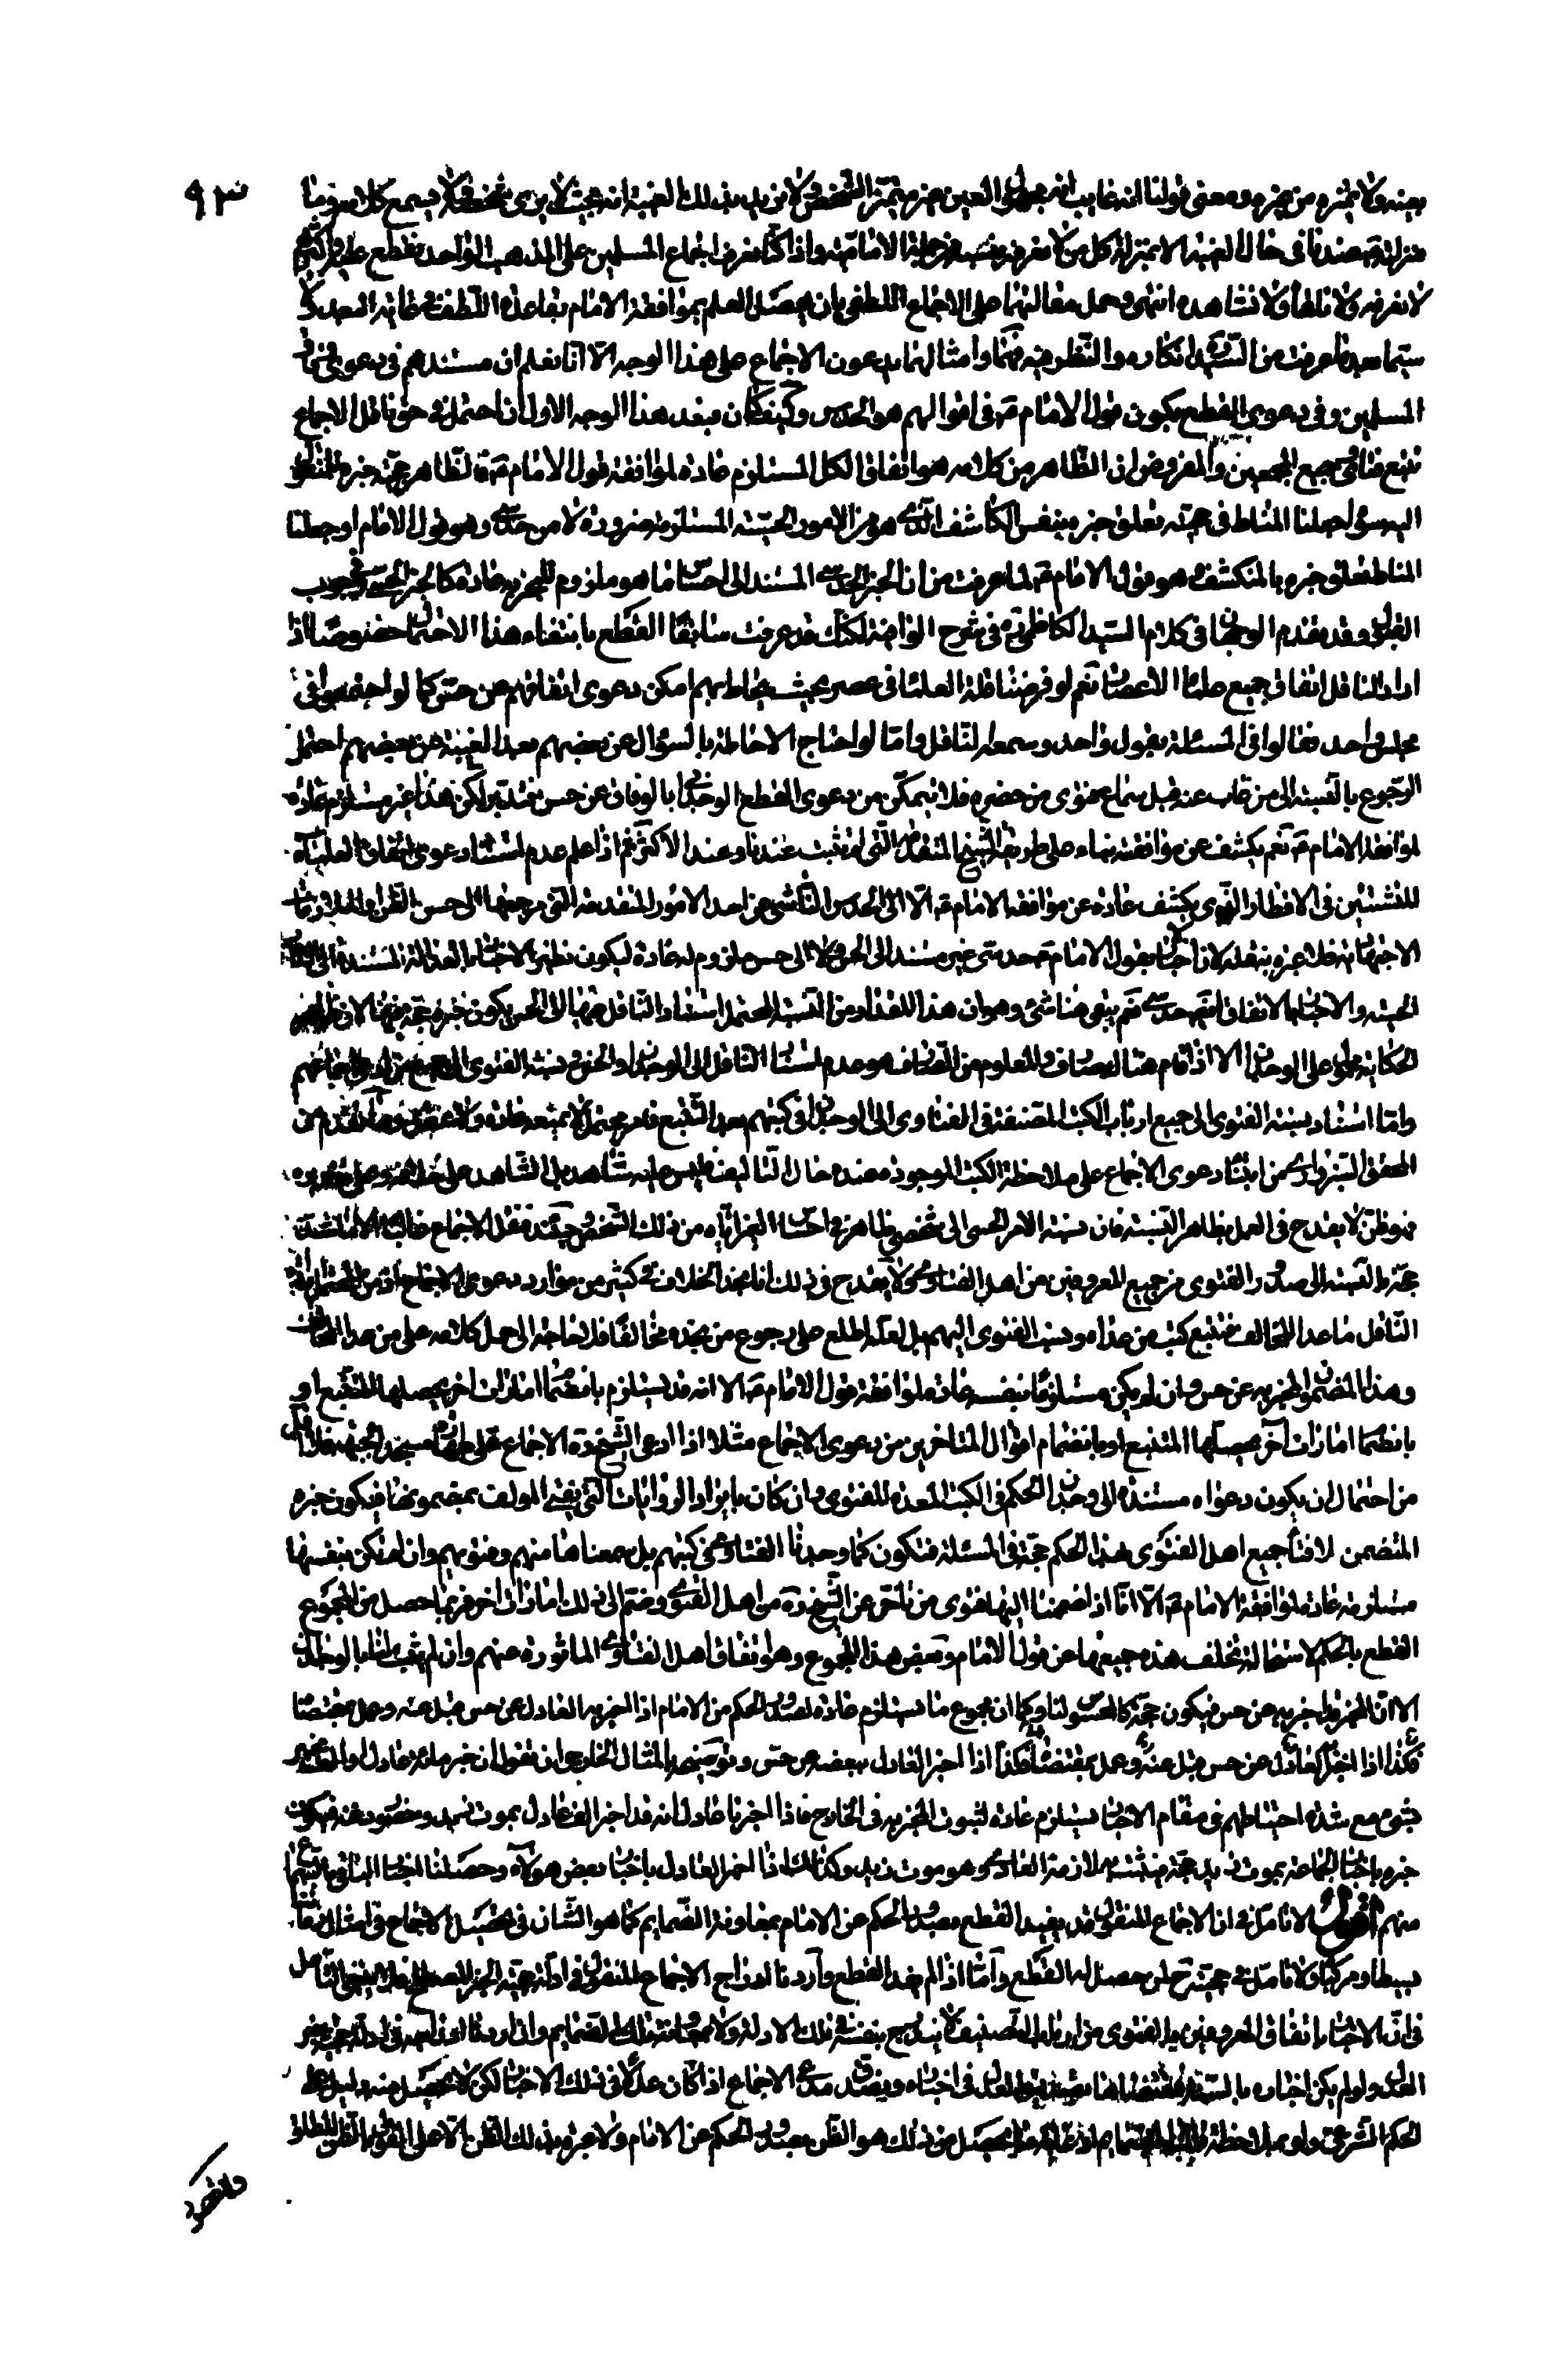 ٩٣
بعينه ولا يميزه من غيره ومعنى قولنا انه غايب انه مجهول العين غير متميز الشخص ولا نريد بذلك الغيبة انه بحيث لا يرى شخصه ولا يسمع كلامه وما
منزلته عندنا في حال الغيبة الا بمنزلة كل من لا نعرفه بنسبه من جملة الامامية واذا كنا نعرف اجماع المسلمين على المذهب الواحد نقطع على
لا نعرفه ولا نلقاه ولا نشاهده انتهى وحمل مقالتهما على الاجماع اللطفى بان يحصل العلم بموافقة الامام بقاعدة اللطف في غاية البعد
سيما بعد ما عرفت من السيد انكاره والتنظر فيه فهما وامثالهما يدعون الاجماع على هذا الوجه الا انا نعلم ان مستندهم في دعوى
المسلمين وفى دعوى القطع بكون قول الامام ع في اقوالهم هو الحدس وكيف كان فبعد هذا الوجه الاول ان احتمل في حق ناقل الاجماع
تتبع فتاوى جميع المجمعين والمفروض ان الظاهر من كلامه هو اتفاق الكل المستلزم عادة لموافقة قول الامام ع فالظاهر حجية خبره للمنقول
اليه سواء جعلنا المناط في حجيته تعلق خبره بنفس الكاشف الذي هو من الامور الحسية المستلزمة ضرورة لامر حدسي وهو قول الامام او جعلنا
المناط تعلق خبره بالمنكشف وهو قول الامام ع لما عرفت من ان الخبر الحدسي المستند الى احساس ما هو ملزوم للمخبر به عادة كالخبر الحسي في وجوب
القبول وقد تقدم الوجهان في كلام السيد الكاظمي ره في شرح الوافية لكنك قد عرفت سابقا القطع بانتفاء هذا الاحتمال خصوصا اذا
اراد الناقل اتفاق جميع علماء الاعصار نعم لو فرضنا قلة العلماء في عصر بحيث يحاط بهم امكن دعوى اتفاقهم عن حس كما لو اجتمعوا في
مجلس واحد فقالوا في المسئلة بقول واحد وسمعه الناقل واما لو احتاج الاحاطة بالسؤال عن بعضهم بعد الغيبة عن بعضهم احتمل
الرجوع بالنسبة الى من غاب عنه قبل سماع فتوى من حضره فلا يتمكن من دعوى القطع الوجداني بالوفاق عن حس فتدبر لكن هذا غير مستلزم عادة
لموافقة الامام ع نعم يكشف عن موافقته بناء على طريقة الشيخ المتقدمة التي لم تثبت عندنا وعند الاكثر ثم اذا علم عدم استناد دعوى اتفاق العلماء
المتشتتين في الاقطار الذي يكشف عادة عن موافقة الامام ع الا الى الحدس الناشى عن احد الامور المتقدمة التي مرجعها الى حسن الظن او الملازمات
الاجتهادية فلا عبرة بنقله لان الاخبار بقول الامام ع حدسي غير مستند الى الحس ولا الى حس ملزوم له عادة ليكون نظير الاخبار بالعدالة المستندة الى الاثار
الحسية والاخبار بالاتفاق ايضا حدسي نعم يبقى هنا شئ وهو ان هذا المقدار من النسبة المحتمل استناد الناقل فيها الى الحس يكون خبره حجة فيها لان ظاهر
الحكاية محمول على الوجدان الا اذا قام هناك صارف والمعلوم من الصارف هو عدم استناد الناقل الى الوجدان والحس في نسبة الفتوى الى جميع من ادعى اجماعهم
واما استناد نسبة الفتوى الى جميع ارباب الكتب المصنفة في الفتاوى الى الوجدان في كتبهم بعد التتبع فامر محتمل لا يمنعه عادة ولا عقل وما تقدم من
المحقق السبزواري من ابتناء دعوى الاجماع على ملاحظة الكتب الموجودة عنده حال التاليف فليس عليه شاهد بل الشاهد على خلافه وعلى تقديره
فهو ظن لا يقدح في العمل بظاهر النسبة فان نسبة الامر الحسي الى شخص ظاهر في احساس الغير اياه من ذلك الشخص وحينئذ فنقل الاجماع غالبا الا ما شذ
حجة بالنسبة الى صدور الفتوى من جميع المعروفين من اهل الفتاوى ولا يقدح في ذلك انا نجد الخلاف في كثير من موارد دعوى الاجماع اذ من المحتمل ارادة
الناقل ما عدا المخالف فتتبع كتب من عداه ونسب الفتوى اليهم بل لعله اطلع على رجوع من نجده مخالفا فلا حاجة الى حمل كلامه على من عدا المخالف
وهذا المضمون المخبر به عن حس وان لم يكن مستلزما بنفسه عادة لموافقة قول الامام ع الا انه قد يستلزم بانضمام امارات اخر يحصلها المتتبع او
بانضمام امارات اخر يحصلها المتتبع او بانضمام اقوال المتاخرين من دعوى الاجماع مثلا اذا ادعى الشيخ قدس الاجماع على
من احتمال ان يكون دعواه مستندة الى وجدان الحكم في الكتب المعدة للفتوى وان كان بايراد الروايات التي يفتى المؤلف بمضمونها فيكون خبره
المتضمن لافتاء جميع اهل الفتوى بهذا الحكم حجة في المسئلة فتكون كما وجدنا الفتاوى في كتبهم بل سمعناها منهم وفتويهم وان لم تكن بنفسها
مستلزمة عادة لموافقة الامام ع الا انا اذا ضممنا اليها فتوى من تاخر عن الشيخ قدس من اهل الفتوى وضم الى ذلك امارات اخر فربما حصل من المجموع
القطع بالحكم لاستحالة تخلف هذه جميعها عن قول الامام وبعض هذا المجموع وهو اتفاق اهل الفتاوى الماثورة عنهم وان لم يثبت لنا بالوجدان
الا ان المخبر قد اخبر به عن حس فيكون حجة كالمحسوس لنا وكما ان مجموع ما يستلزم عادة لصدور الحكم من الامام اذا اخبر به العادل عن حس قبل منه وعمل بمقتضاه
فكذا اذا اخبر العادل عن حس قبل منه وعمل بمقتضاه فكذا اذا اخبر العادل ببعضه عن حس وتوضيحه بالمثال الخارجي ان نقول ان خبر مائة عادل او الف
بشئ مع شدة احتياطهم في مقام الاخبار يستلزم عادة لثبوت المخبر به في الخارج فاذا اخبرنا عادل انه قد اخبر الف عادل بموت زيد وحضور دفنه فيكون
خبره باخبار الجماعة بموت زيد حجة فيثبت به لازمه العادي وهو موت زيد وكذلك اذا اخبر العادل باخبار بعض هؤلاء وحصلنا اخبار الباقي بالسماع
منهم اقول لا تامل في ان الاجماع المنقول قد يفيد القطع بصدور الحكم عن الامام بمعاونة الضمايم كما هو الشان في تحصيل الاجماع في امثال زماننا
بسيطا ومركبا ولا تامل في حجيته ح لمن حصل له القطع واما اذا لم يفد القطع واردنا ادراج الاجماع المنقول في ادلة حجية الخبر
في ان الاخبار باتفاق المعروفين بالفتوى من ارباب التصنيف لا يندرج بنفسه في تلك الادلة ولا بمعاونة تلك الضمايم
العدل ولو لم يكن اخباره بالسنة في اخباره ويصدق مدعى الاجماع اذا كان عدلا في ذلك الاخبار لكن لا يحصل منه دليل على
الحكم الشرعى ولو بملاحظة الضمايم اذ غاية ما يحصل من ذلك هو الظن بصدور الحكم عن الامام ولا عبرة بذلك الظن الا على القول بالظن المطلق